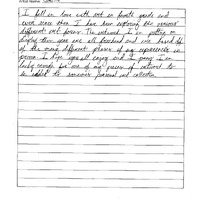 Artist Name:
I fell in love with art in fourth grade and
ever since then I have been exploring the various
different art forms. The artwork I am putting on
display then you are all freehand and are based off
of the many different places of my experiences in
person. I hope you all enjoy and I pray I am
lucky enough for one of my pieces of artwork to
be added to someone's personal art collection.